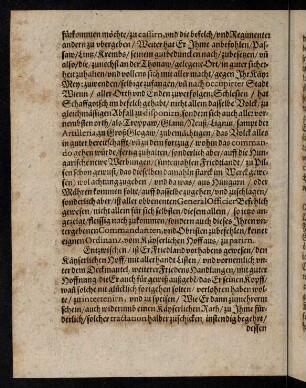 fürkommen möchte/ zu cassirn/ und die befelch/ und Regimenter
andern zu vbergeben/ Weiter hat Er Ihme anbefohlen/ Pas-
saw/ Lintz/ Krembs/ seinem gutbeduncken nach/ zubesetzen/ vñ
also/ die/ zunechst an der Thonaw/ gelegene/ Ort/ in guter sicher-
heit zuhalten/ und vollens sich mit aller macht/ gegen Ihr Kay:
May: zuwenden/ selbige aufzufangen/ vñ nach occupirter Stadt
Wienn/ aller Orth vnd Enden zuverfolgen: Schlesien/ hat
Schaffgotsch im befelch gehabt/ nicht allein dasselbe Volck/ zu
gleichmässigen Abfall zu disponirn/ sondern sich auch aller vor-
nembsten orth/ als Troppaw/ Glatz/ Neuß/ Sagan/ sampt der
Artilleria zu Groß Glogaw/ zubemächtigen/ das Volck alles
in guter bereitschafft/ vñ zu dem fortzug/ wohin das comman-
do gehen würde/ fertig zuhalten/ sonderlich aber/ auff die Hun-
garischen newe Werbungen/ (umb welche Friedlandt/ zu Pil-
sen schon gewust/ das dieselben damahln starck im Werck gewe-
sen) wol achtung zugeben/ und wa etwas/ aus Hungarn/ oder
Mähren kommen solte/ auf dasselbe zugehen/ und zuschlagen/
sonderlich aber/ ist aller obbenenten General Officier Befehlch
gewesen/ nicht allein für sich selbsten/ diesem also/ so jetzo an-
gezeigt/ fleissig nach zukommen/ sondern auch dieses Ihren vn-
tergebenen Commandanten/ und Obristen zubefehlen/ keinet ei-
eignen Ordinanz/ vom Käyserlichen Hoff auß/ zu pariren.
Entzwischen/ ist Er Friedland vorhabens gewesen/ den
Käyserlichen Hoff/ mit allerhandt Listen/ und vornemlich vn-
ter dem Deckmantel/ weiterer Friedens Handlungen/ mit guter
Hoffnung/ die Er auch für gewiß außgebẽ/ das Er seinen Kopff/
wañ solche nit glücklich fortgehen solten/ verlohren haben wol-
te/ zu intertenirn/ und zu speisen/ Wie Er dann zum ehrern
schein/ auch widerumb einen Käyserlichen Rath/ zu Ihme für-
derlich/ solcher tractation halber zuschicken/ inständig begehrt/
dessen